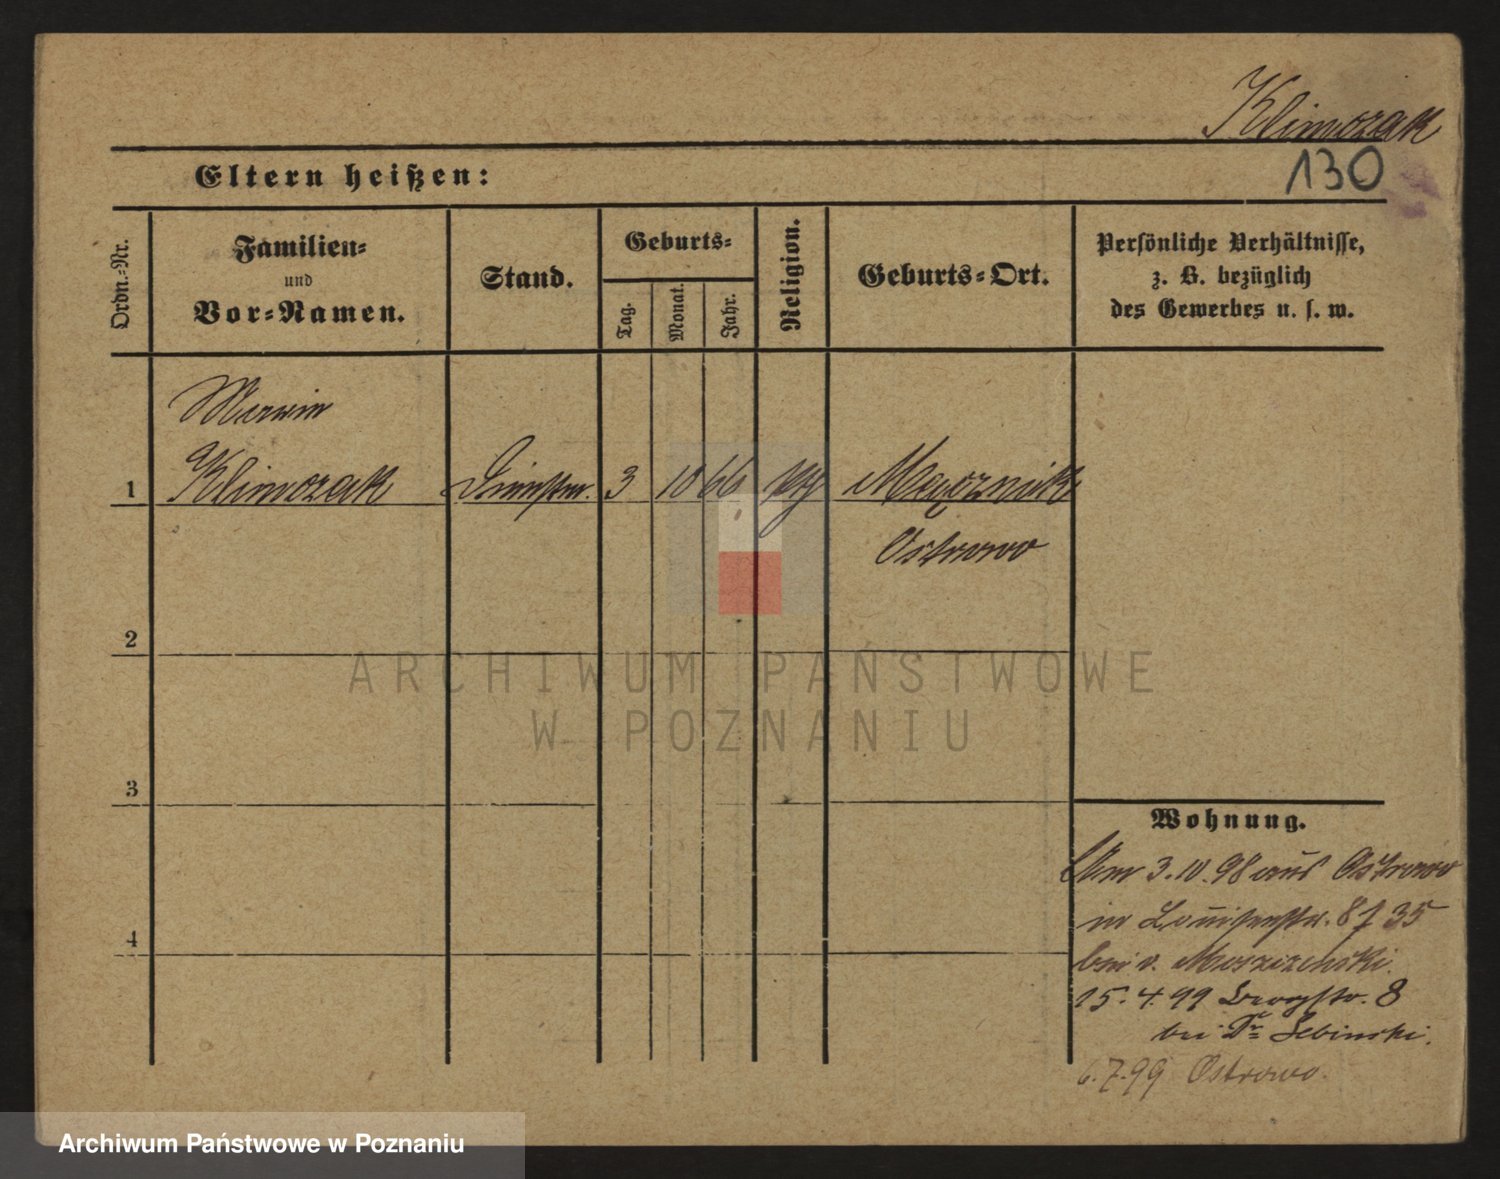 Klimczak
130
Eltern heißen:
Ordn.-Nr.
Familien-
und
Vor-Namen.
Stand.
Geburts-
Tag.
Monat.
Jahr.
Religion.
Geburts-Ort.
Persönliche Verhältnisse,
z. B. bezüglich
des Gewerbes u. s. w.
1
Klimczak
3
10
66
Ostrowo
2
3
4
Wohnung.
3.10.98 aus Ostrowo
in Louisenstr. 8 35
bei v.
15.4.99 Bergstr. 8
bei Dr
6.7.99 Ostrowo.
ARCHIWUM PAŃSTWOWE
W POZNANIU
Archiwum Państwowe w Poznaniu